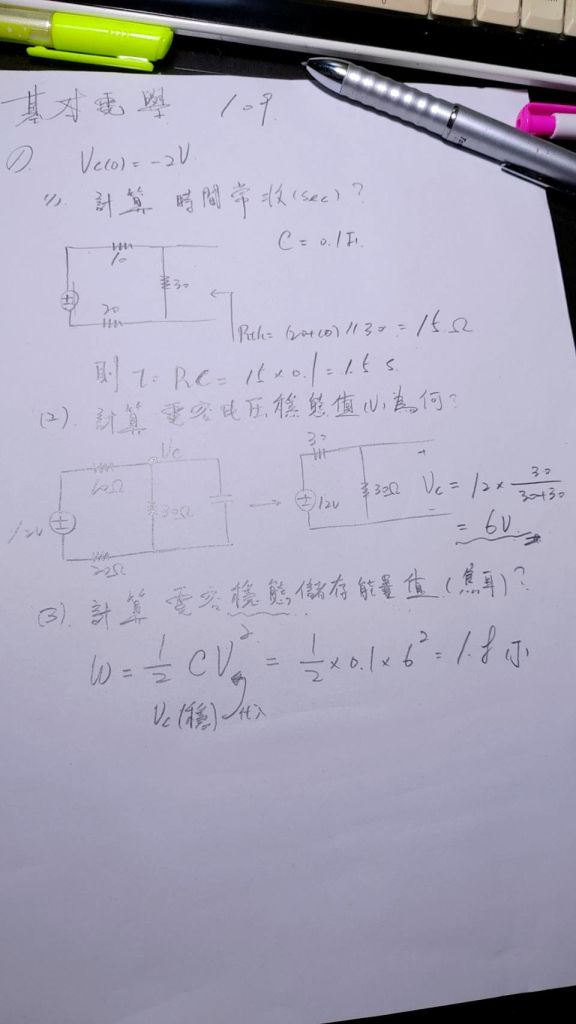 基本電學 109
Vc(0) = -2V
計算 時間常 (sec)?
C = 0.1F
10
30
20
Rth = (20+10)//30 = 15Ω
則 τ = RC = 15 × 0.1 = 1.5 s
(2). 計算 電容电压穩態值(V)為何?
Vc
30Ω
12V
30
12V
30Ω
+
Vc = 12 × 30/(30+30)
-
= 6V
(3). 計算 電容穩態儲存能量值(焦耳)?
W = 1/2 CV² = 1/2 × 0.1 × 6² = 1.8
Vc(穩)